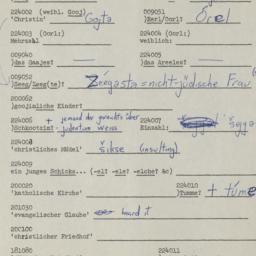 224002 (weibl. Gooj) 009051
'Christin' Gojta )Earl/Oorl! Orel
224003 (Oorl:) 224004 (Oorl:)
Mehrzahl weiblich:
009040 009045
)das Gaajes? — )das Areeles? —
009052
)Seeg/Seeg(te)? Zéegasta = nicht-jüdische Frau
200062
)goojianliche Kinder?
224006 + jemand der garnichts über 224007
)Schkootzim? - judentum weiss Einzahl:
224008
'christliches Mädel' šikse (insulting)
224009
ein junges Schicks... (-el? -sle? -elche? &c)
200020 224010
'katholische Kirche' )Tumme? + túme
201030
'evangelischer Glaube' heard it
200100
'christlicher Friedhof'
181080 224011